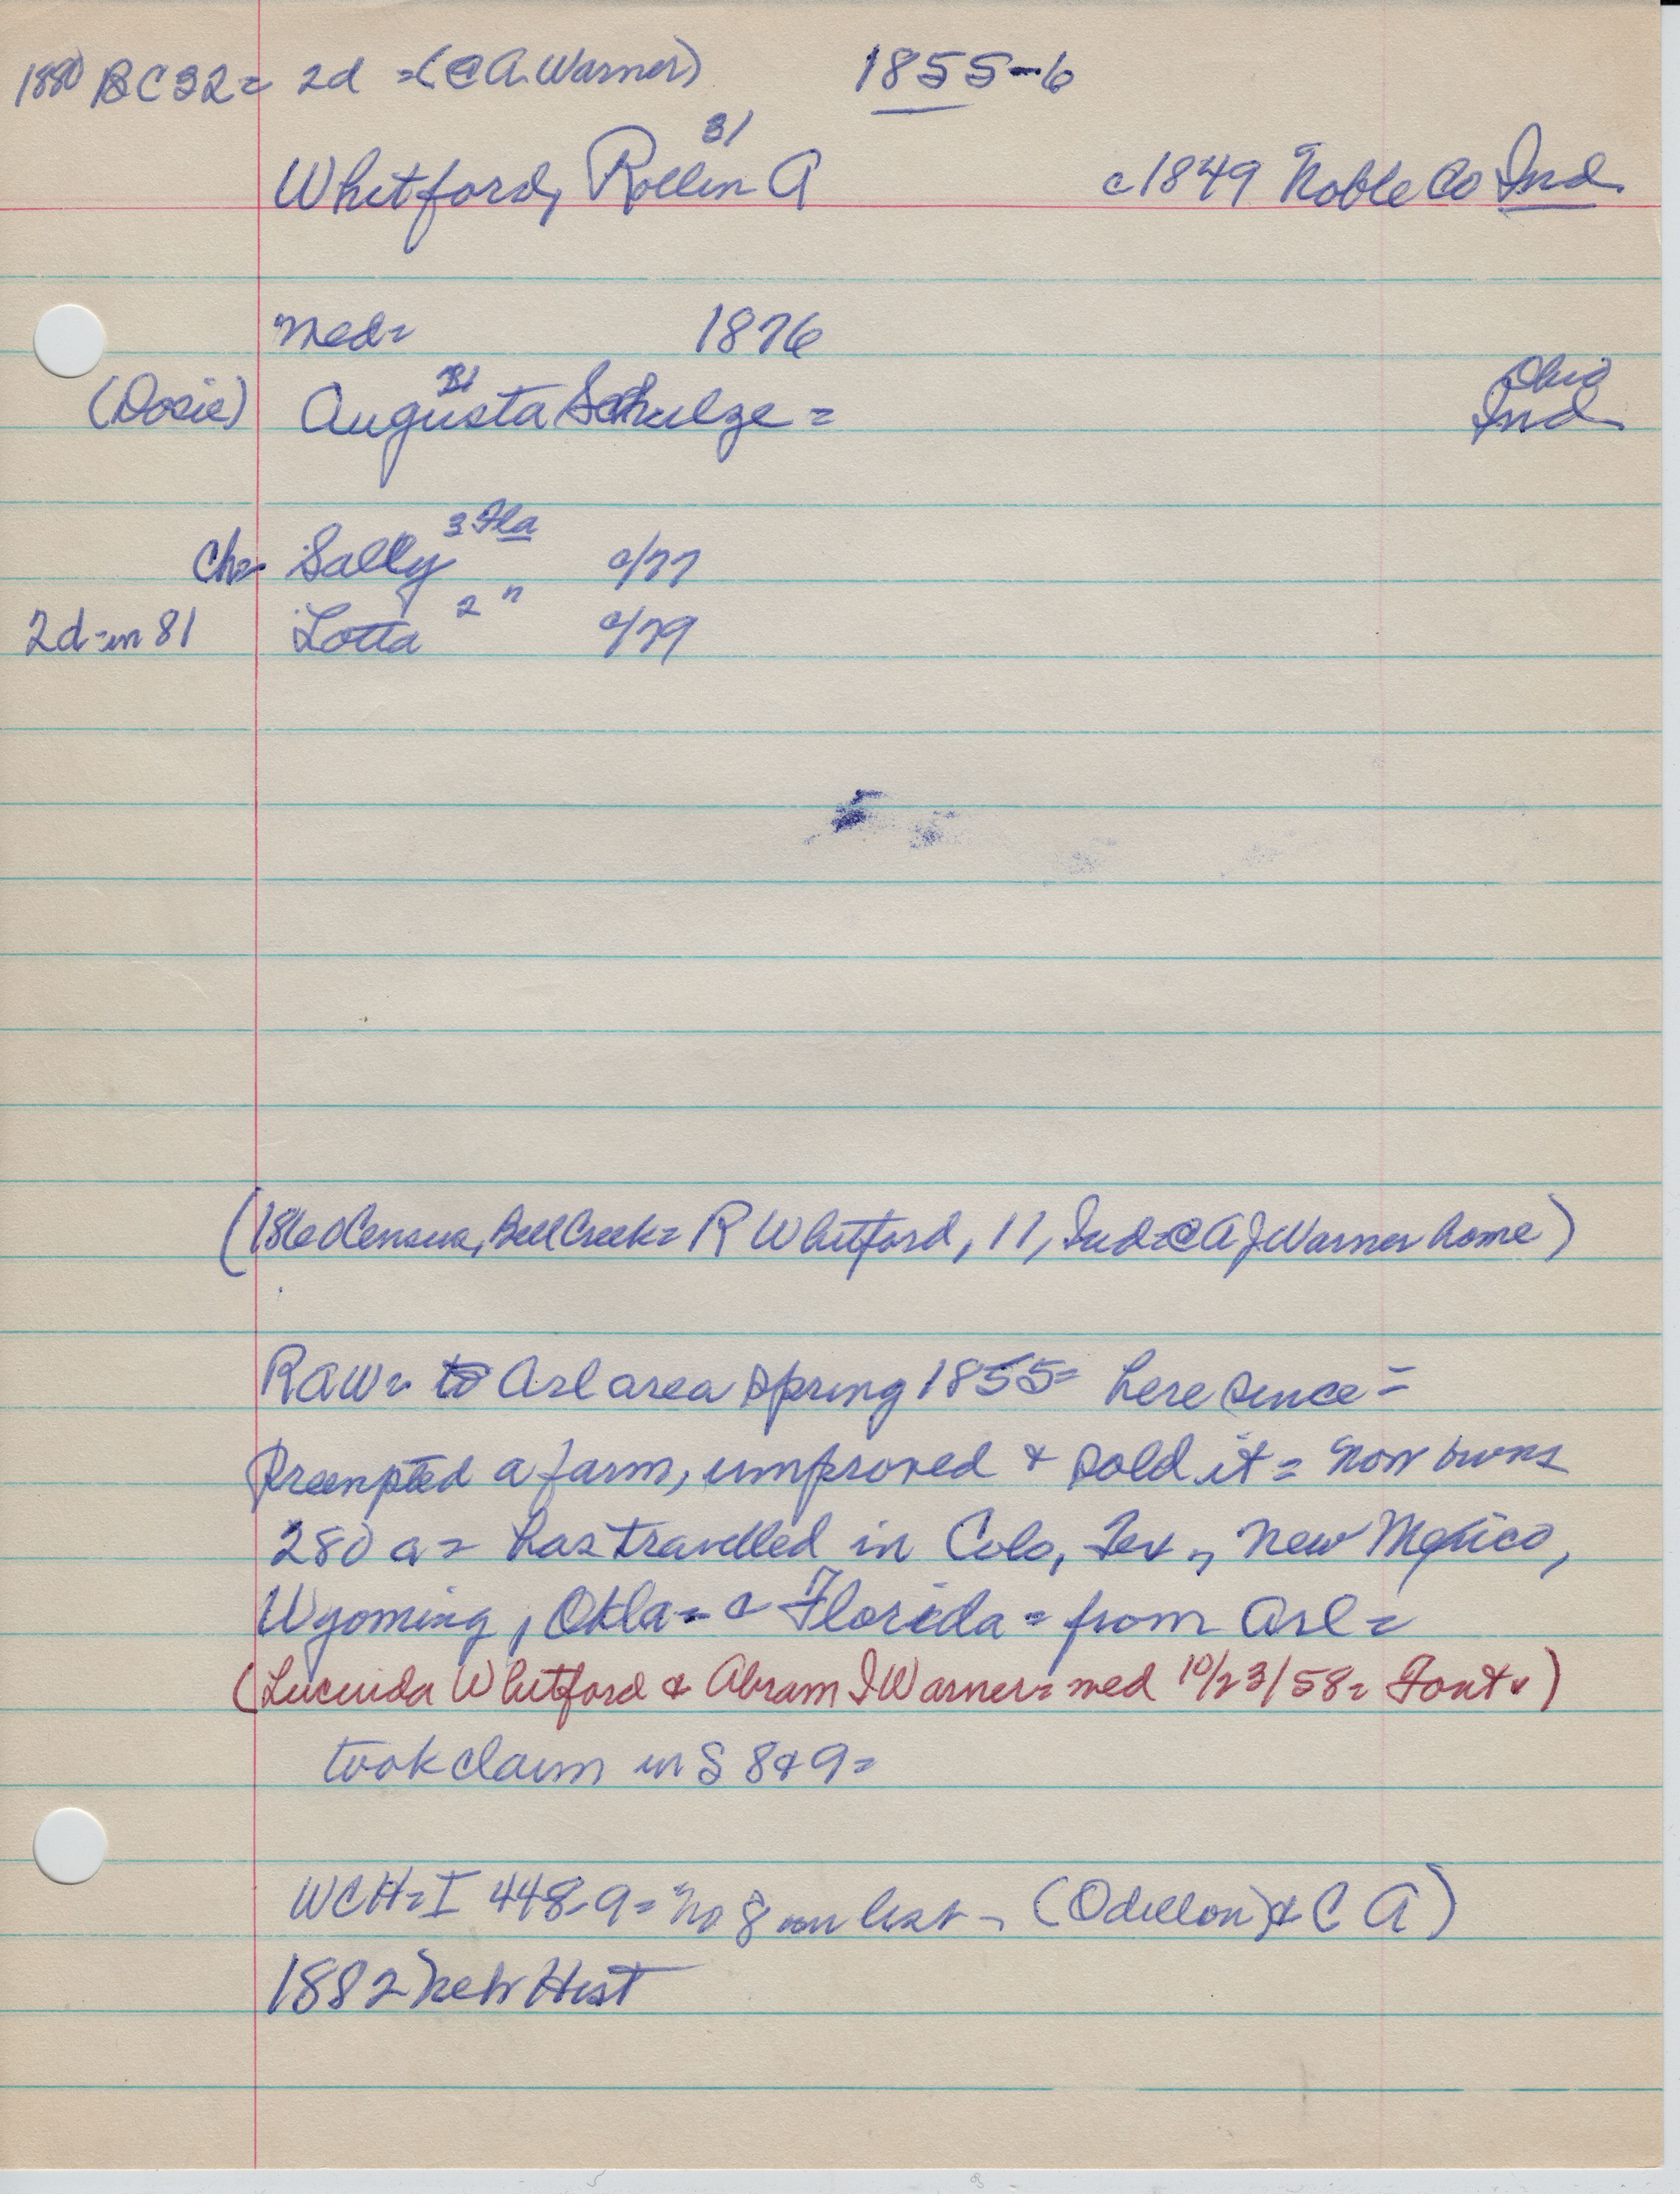 1880 BC 32= 2d =(@ A. Warner) 1855-6
31
Whitford, Rollin A c1849 Noble Co Ind.
Med= 1876
(Dosie) Augusta Schulze = Ohio
31 Ind
Ch= Sally 3 Fla c/77
2d=in 81 Lotta 2 " c/79
(1860 Census, Bell Creek= R Whitford, 11, Ind=@ A J Warner home)
RAW= to Arl area spring 1855= here since=
Preempted a farm, improved & sold it = now owns
280 a= has travelled in Colo, Tex, New Mexico,
Wyoming, Okla= & Florida = from Arl=
(Lucinda Whitford & Abram I Warner= med 10/23/58= Font)
took claim in S 8&9=
WCH=I 448-9= No 8 on list - (Odellon) & C A)
1882 Neb Hist